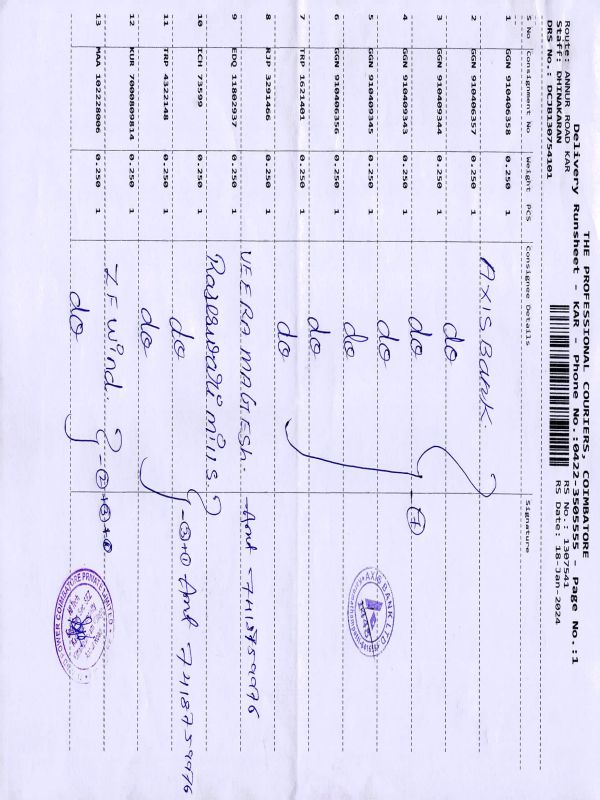 THE PROFESSIONAL COURIERS, COIMBATORE
Delivery Runsheet - KAR - Phone No.:0422-3505555 - Page No.:1
Route: ANNUR ROAD KAR RS No.: 1307541
Staff: DHINAKARAN RS Date: 18-Jan 2024
DRS No.: DCJB130754101
S No Consignment No Weight PCS Consignee Details Signature
1 GGN 910406358 0.250 1 AXIS Bank
2 GGN 910406357 0.250 1 do
3 GGN 910409344 0.250 1 do
4 GGN 910409343 0.250 1 do - 7
5 GGN 910409345 0.250 1 do
6 GGN 910406356 0.250 1 do
7 TRP 1621401 0.250 1 do
8 RJP 3291466 0.250 1 VEERA MAGESH.
9 EDQ 11802937 0.250 1 Raseswari mills
10 ICH 73509 0.250 1 do
11 TRP 4322148 0.250 1 do
12 KUR 7000809814 0.250 1 ZF Wind.
13 MAA 102228006 0.250 1 do
AXIS BANK LTD
COIMBATORE PRIVATE LIMITED